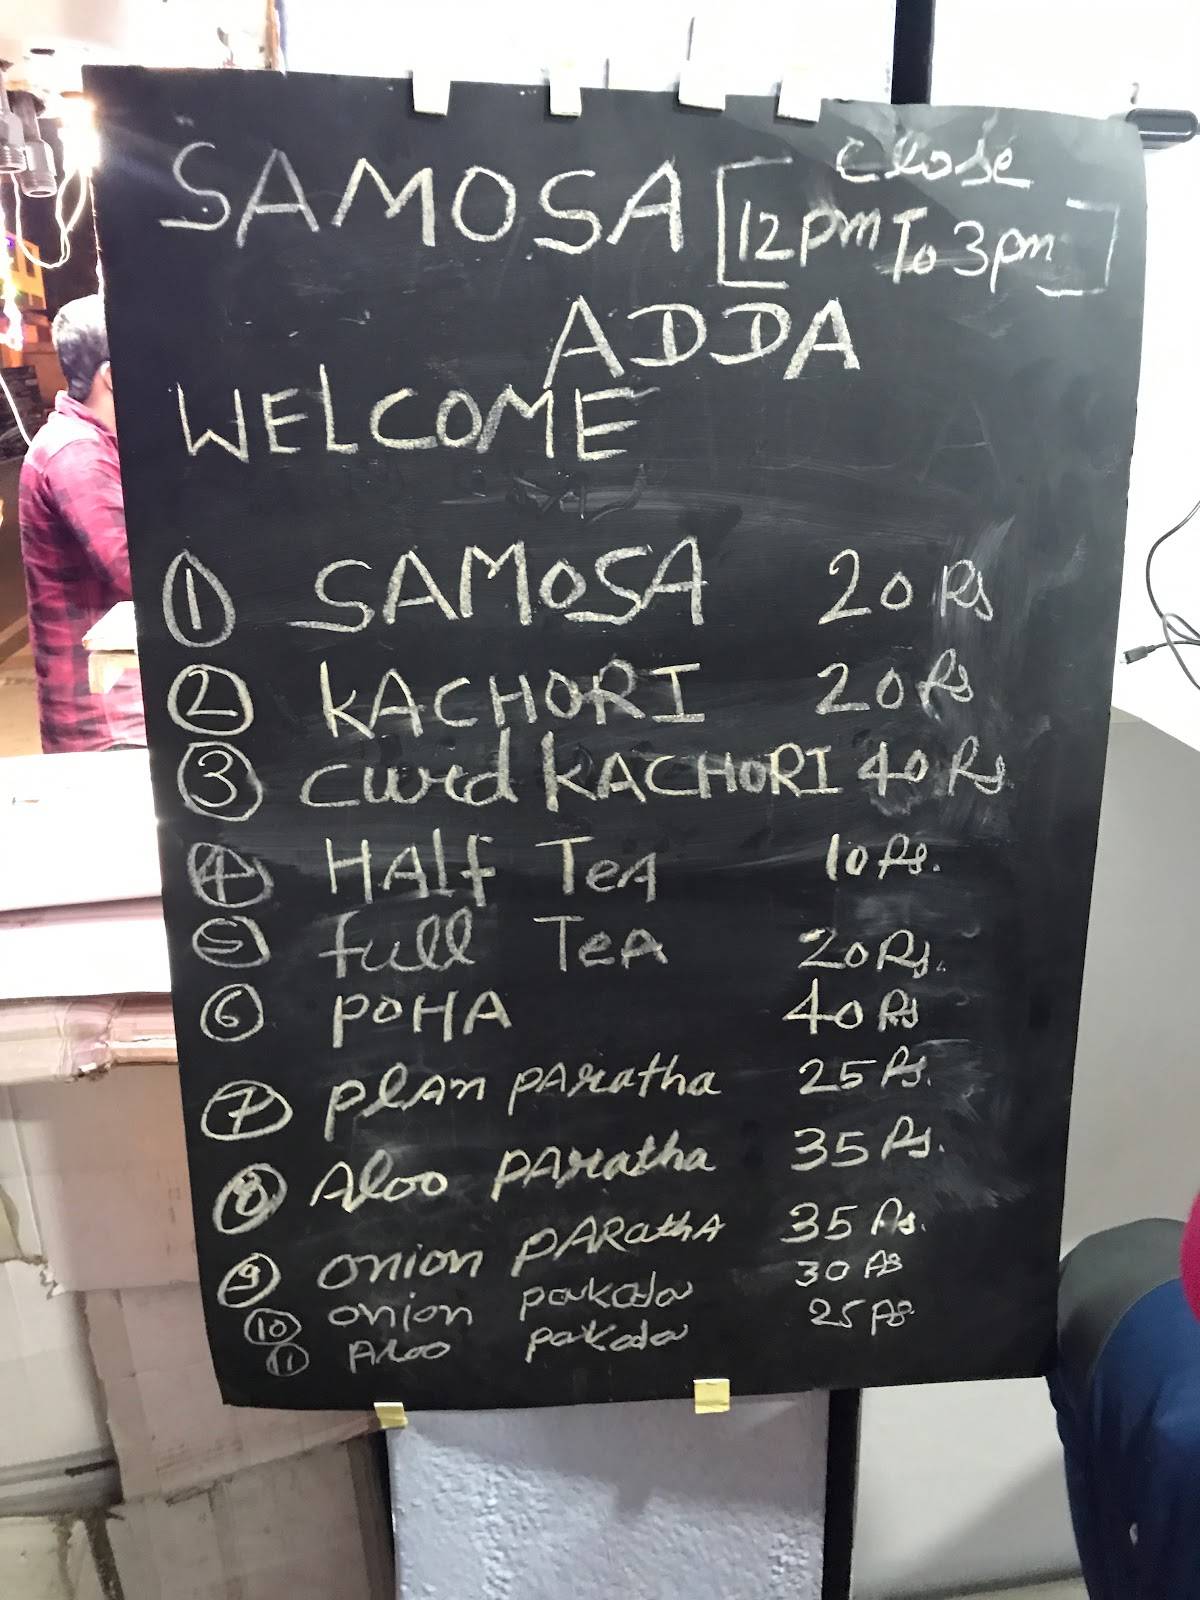 SAMOSA [12pm To 3pm]
close
ADDA
WELCOME
1 SAMOSA 20 Rs
2 KACHORI 20 Rs
3 curd KACHORI 40 Rs.
4 HAlf TeA 10 Rs.
5 full TeA 20 Rs.
6 POHA 40 Rs
7 plAn pAratha 25 Rs.
8 Aloo pAratha 35 Rs.
9 onion pARathA 35 Rs.
10 onion pakoda 30 Rs
11 Aloo pakoda 25 Rs.